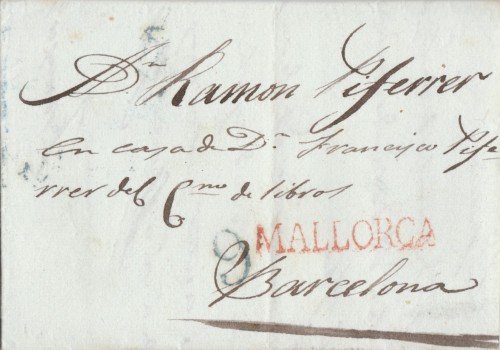 A Dn. Ramon Piferrer
en casa de Dn. Francisco Pife
rrer del Cmo de libros
9
MALLORCA
Barcelona